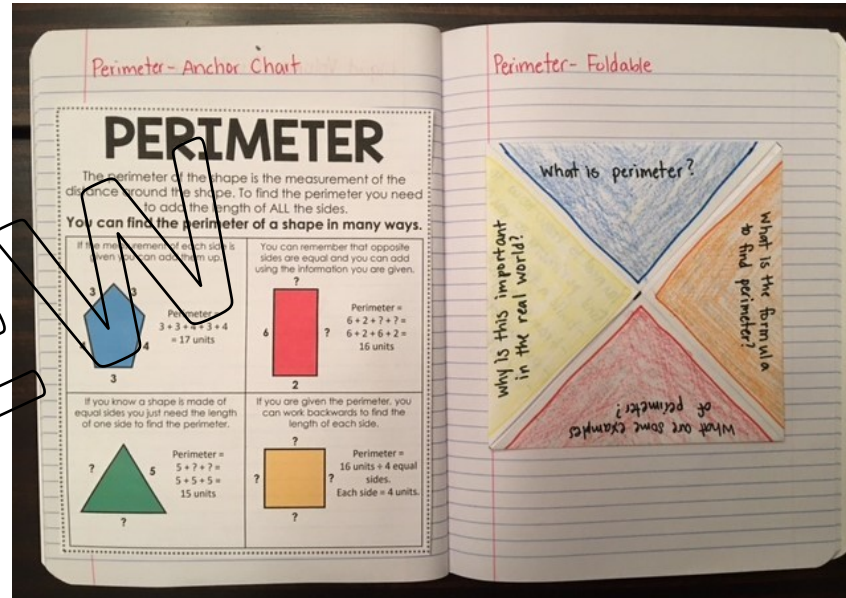 Perimeter- Anchor Chart
PERIMETER
The perimeter of the shape is the measurement of the
distance around the shape. To find the perimeter you need
to add the length of ALL the sides.
You can find the perimeter of a shape in many ways.
If the measurement of each side is
given you can add them up.
3 3
Perimeter =
3 + 3 + 4 + 3 + 4
= 17 units
4
3
You can remember that opposite
sides are equal and you can add
using the information you are given.
?
6
?
2
Perimeter =
6 + 2 + ? + ? =
6 + 2 + 6 + 2 =
16 units
If you know a shape is made of
equal sides you just need the length
of one side to find the perimeter.
? 5
?
Perimeter =
5 + ? + ? =
5 + 5 + 5 =
15 units
If you are given the perimeter, you
can work backwards to find the
length of each side.
?
? ?
?
Perimeter =
16 units ÷ 4 equal
sides.
Each side = 4 units.
Perimeter- Foldable
What is perimeter?
Why is this important
in the real world?
What is the formula
to find perimeter?
What are some examples
of perimeter?